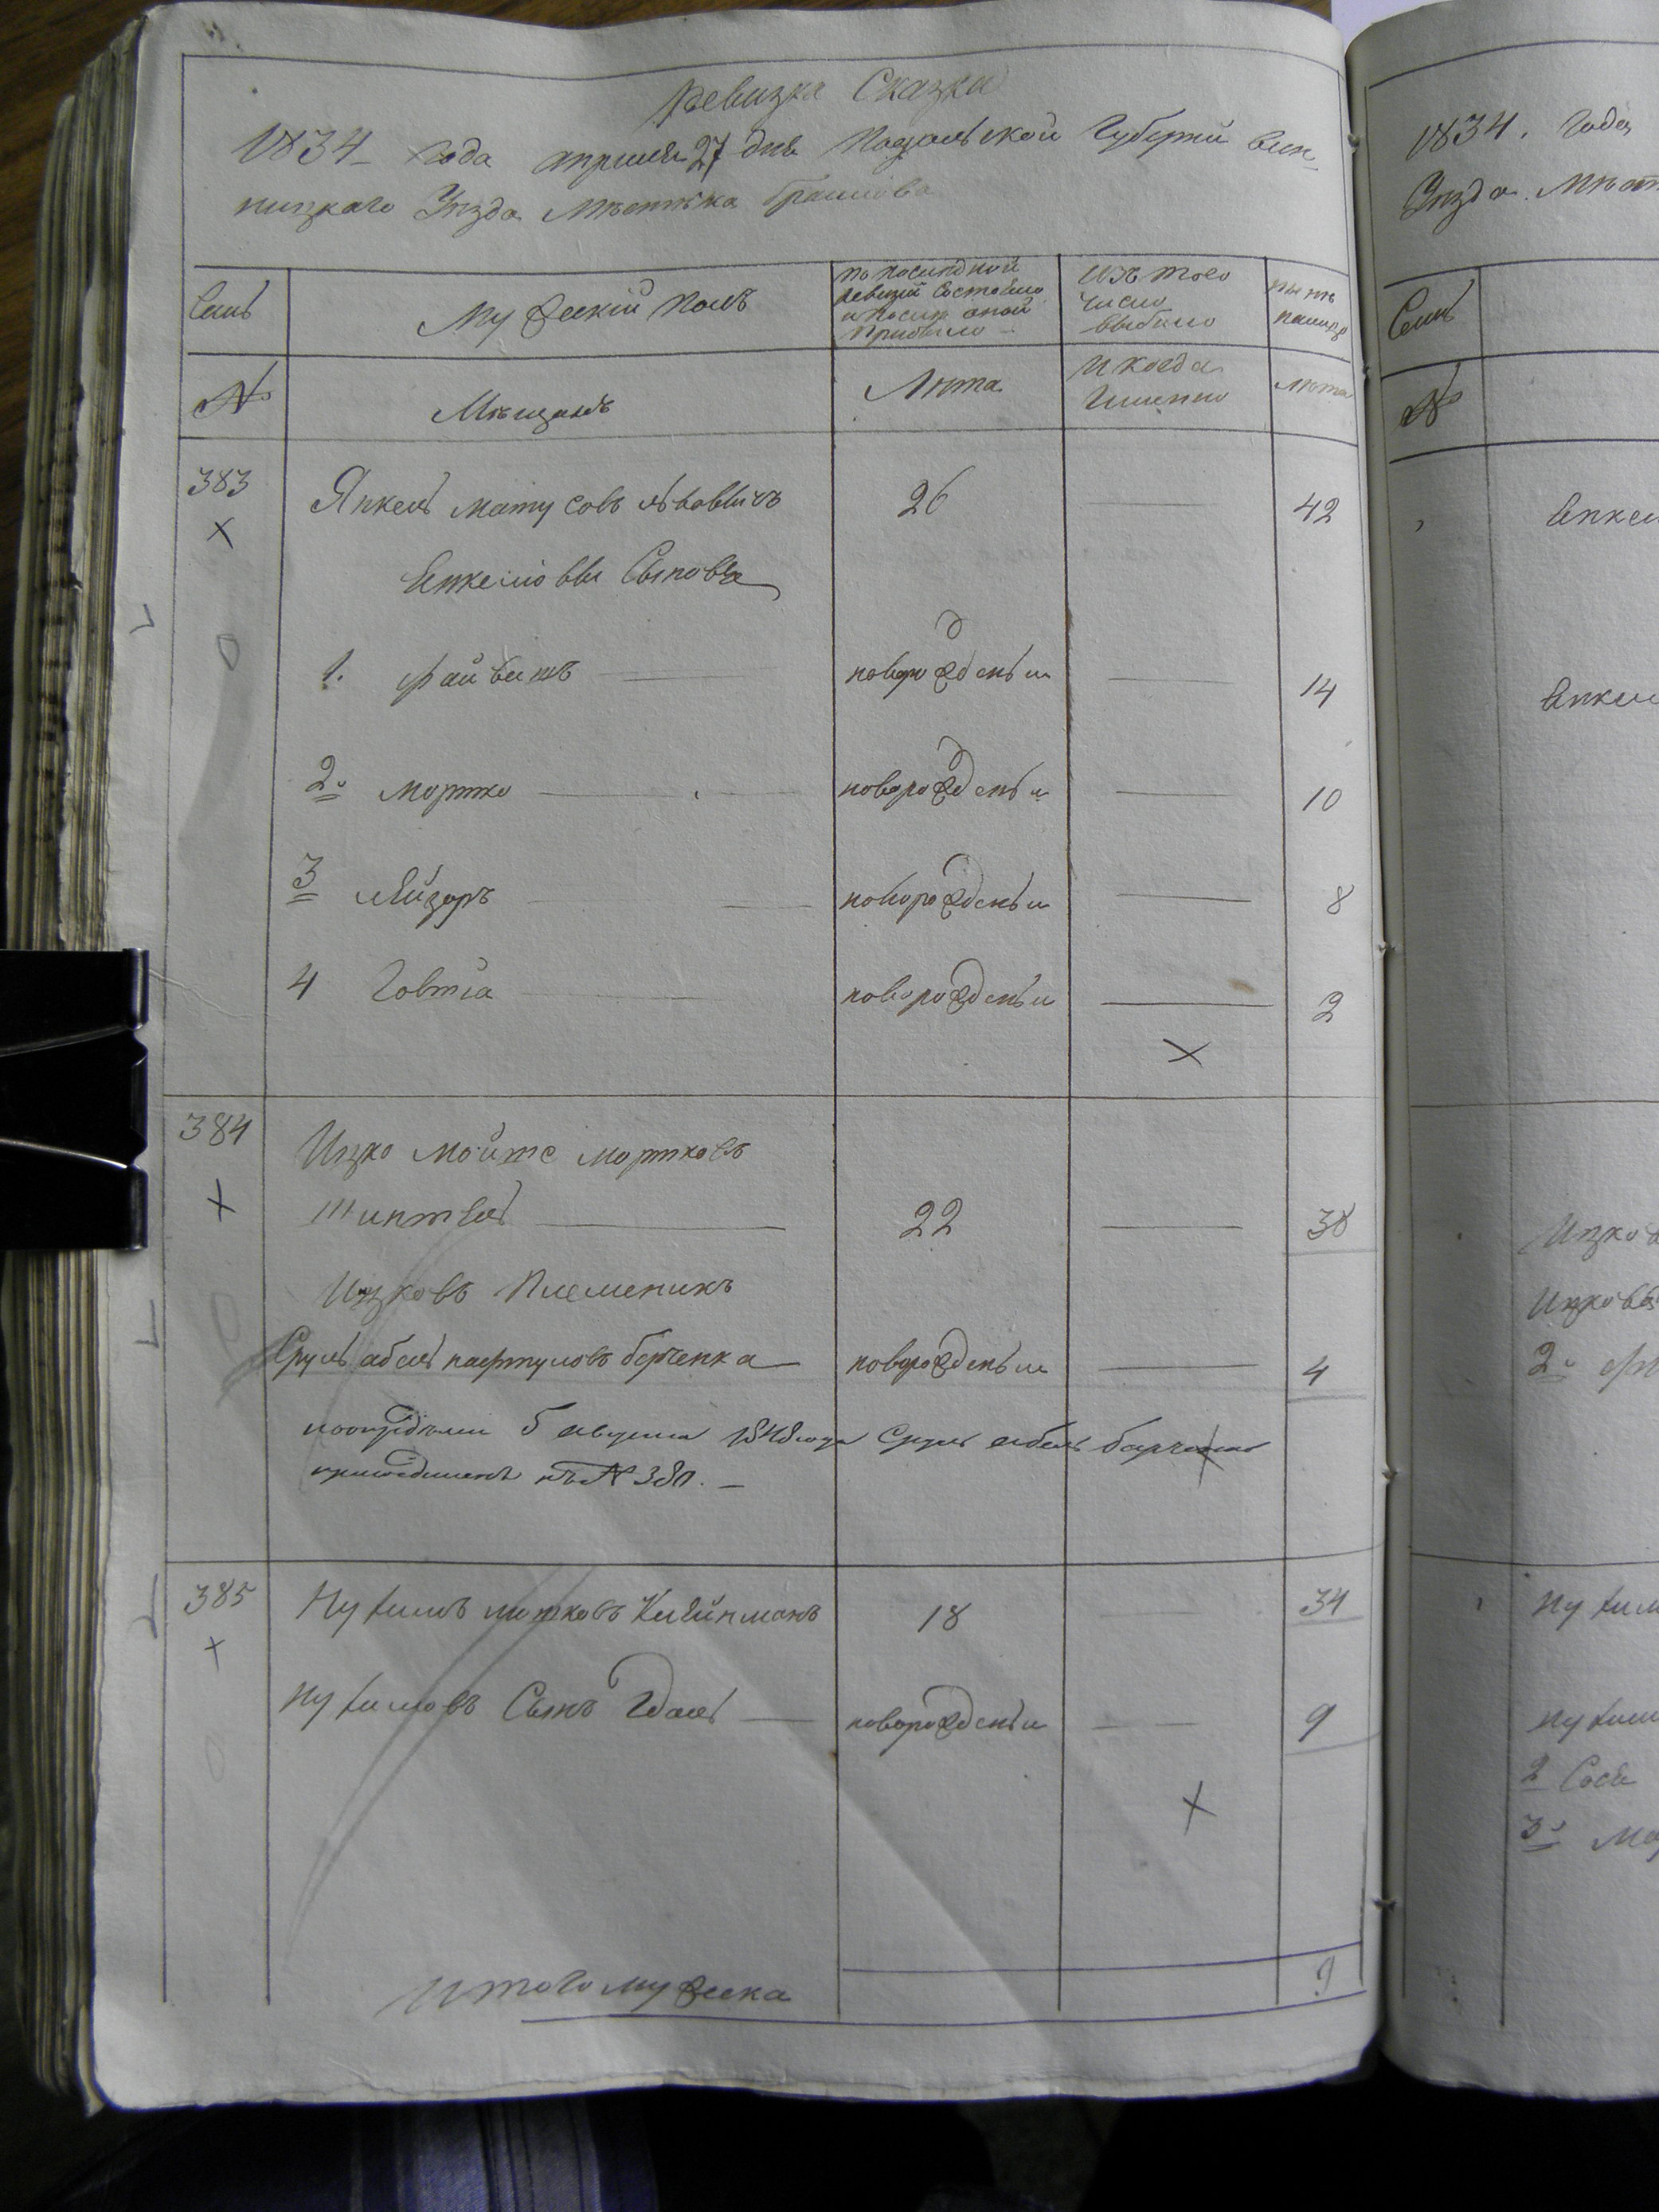 Ревизка Сказка
1834 года апреля 27 дня Подольской Губернии Вин
ницкаго Уезда Местечка Браилова
Семьи
Мужескій Полъ
по последной
ревизіи состояло
и после оной
прибыло
изъ того
числа
выбыло
ныне
налицо
№
Мещане
Лета
и когда
именно
лета
383
Янкель Матусовъ
26
42
Янкелiовы Сыновья
1. Файвишъ
новорожденъи
14
2й Мортко
новорожденъи
10
3 Лейзоръ
новорожденъи
8
4 Товтiа
новорожденъи
2
384
Ицко Мойше Мортковъ
22
38
Ицковъ Племеникъ
Сруль абель нафтуловъ берченка
новорожденъи
4
5 августа 1848 года Сруль абель
къ № 380.
385
Нухимъ Клейнманъ
18
34
Нухимовъ Сынъ Гдаль
новорожденъи
9
Итого мужеска
9
1834. Года
Уезда. Мест
Семьи
№
Янкел
Янкел
Ицков
Ицкова
2й
Нухим
Нухим
2 Сося
3й Ма